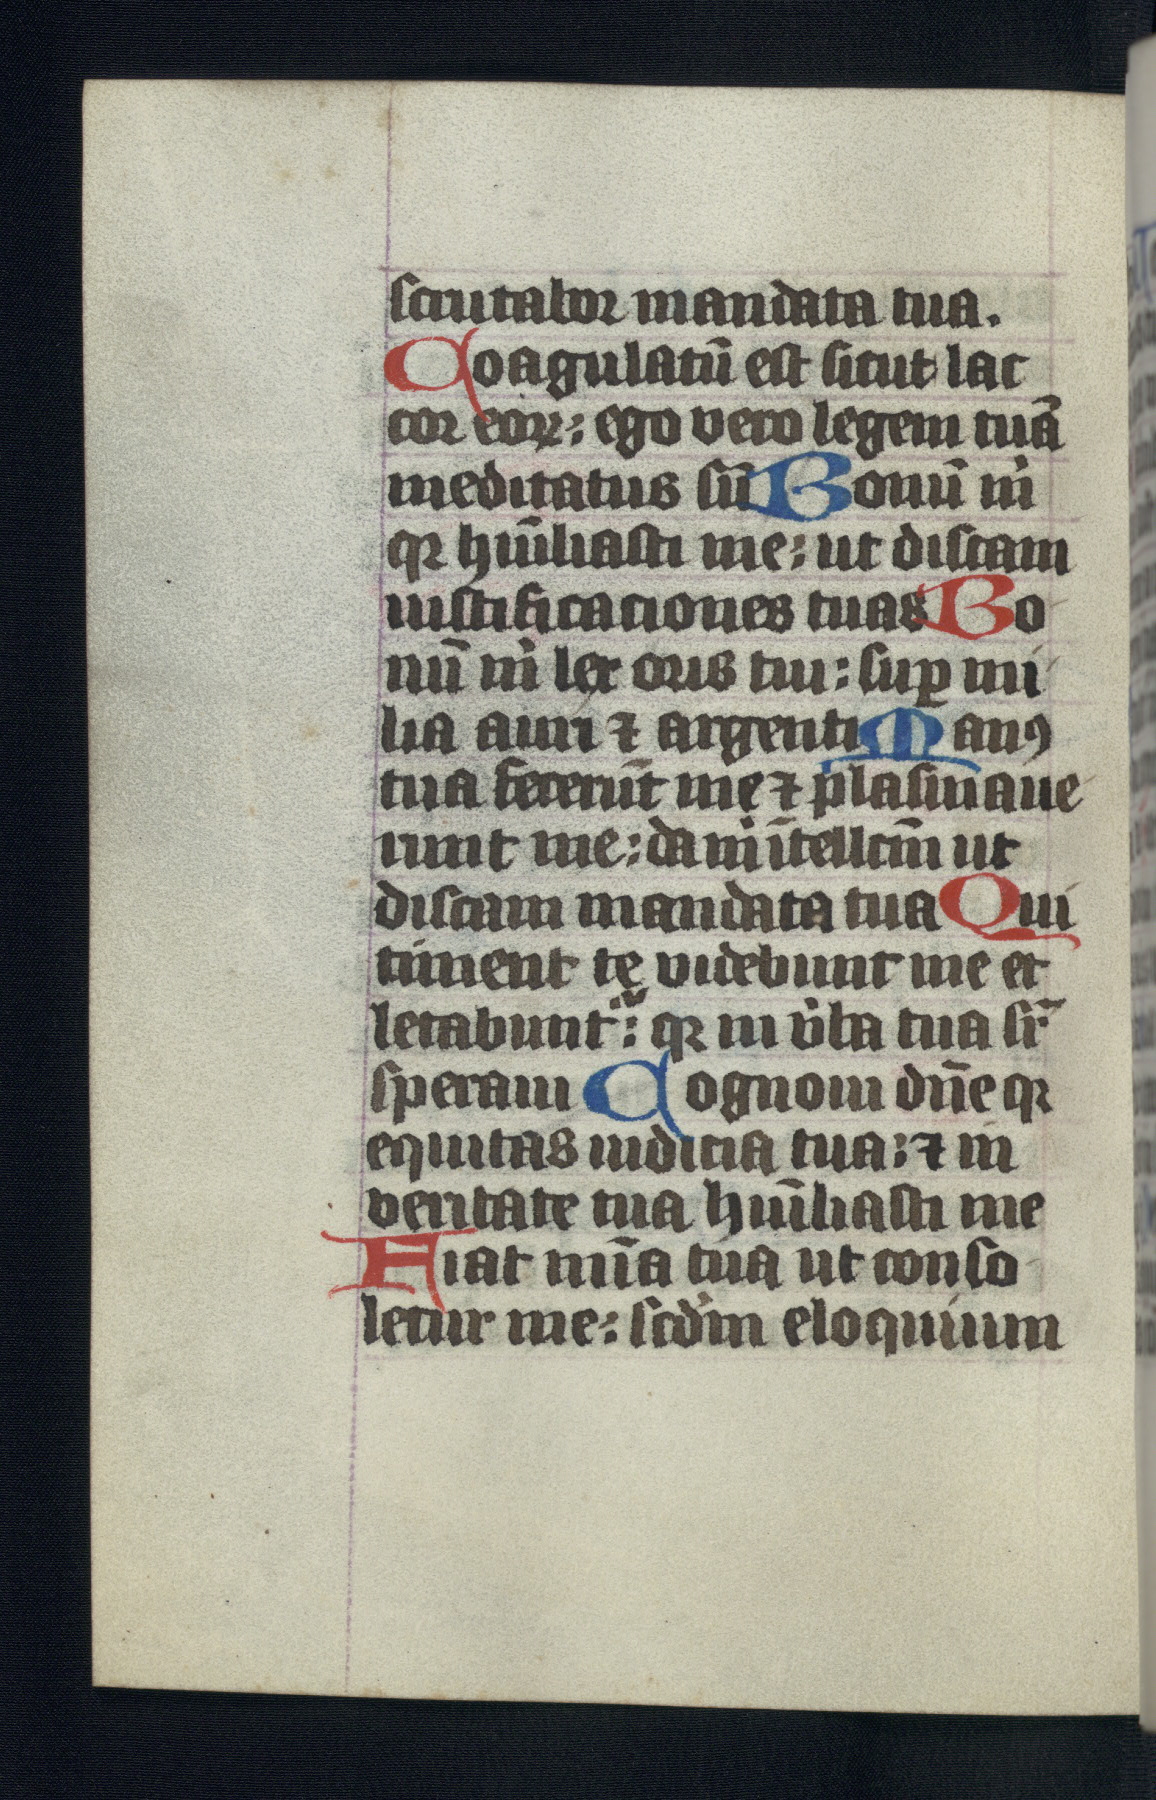 scrutabor mandata tua.
Coagulatū est sicut lac
cor eoꝝ: ego vero legem tuā
meditatus sū Bonū m̍
qꝛ hūiliasti me: ut discam
iustificaciones tuas Bo
nū m̍ lex oris tui: suꝑ mi
lia auri ⁊ argenti Manꝯ
tua fecerūt me ⁊ plasmaue
runt me: da m̍ ītellcm̄ ut
discam mandata tua Qui
timent te videbunt me et
letabunt᷑: qꝛ in v̍ba tua sr̄
speraui Cognoui dn̄e qꝛ
equitas iudicia tua: ⁊ in
veritate tua hūiliasti me
Fiat mīa tua ut conso
letur me: scd̍m eloquium